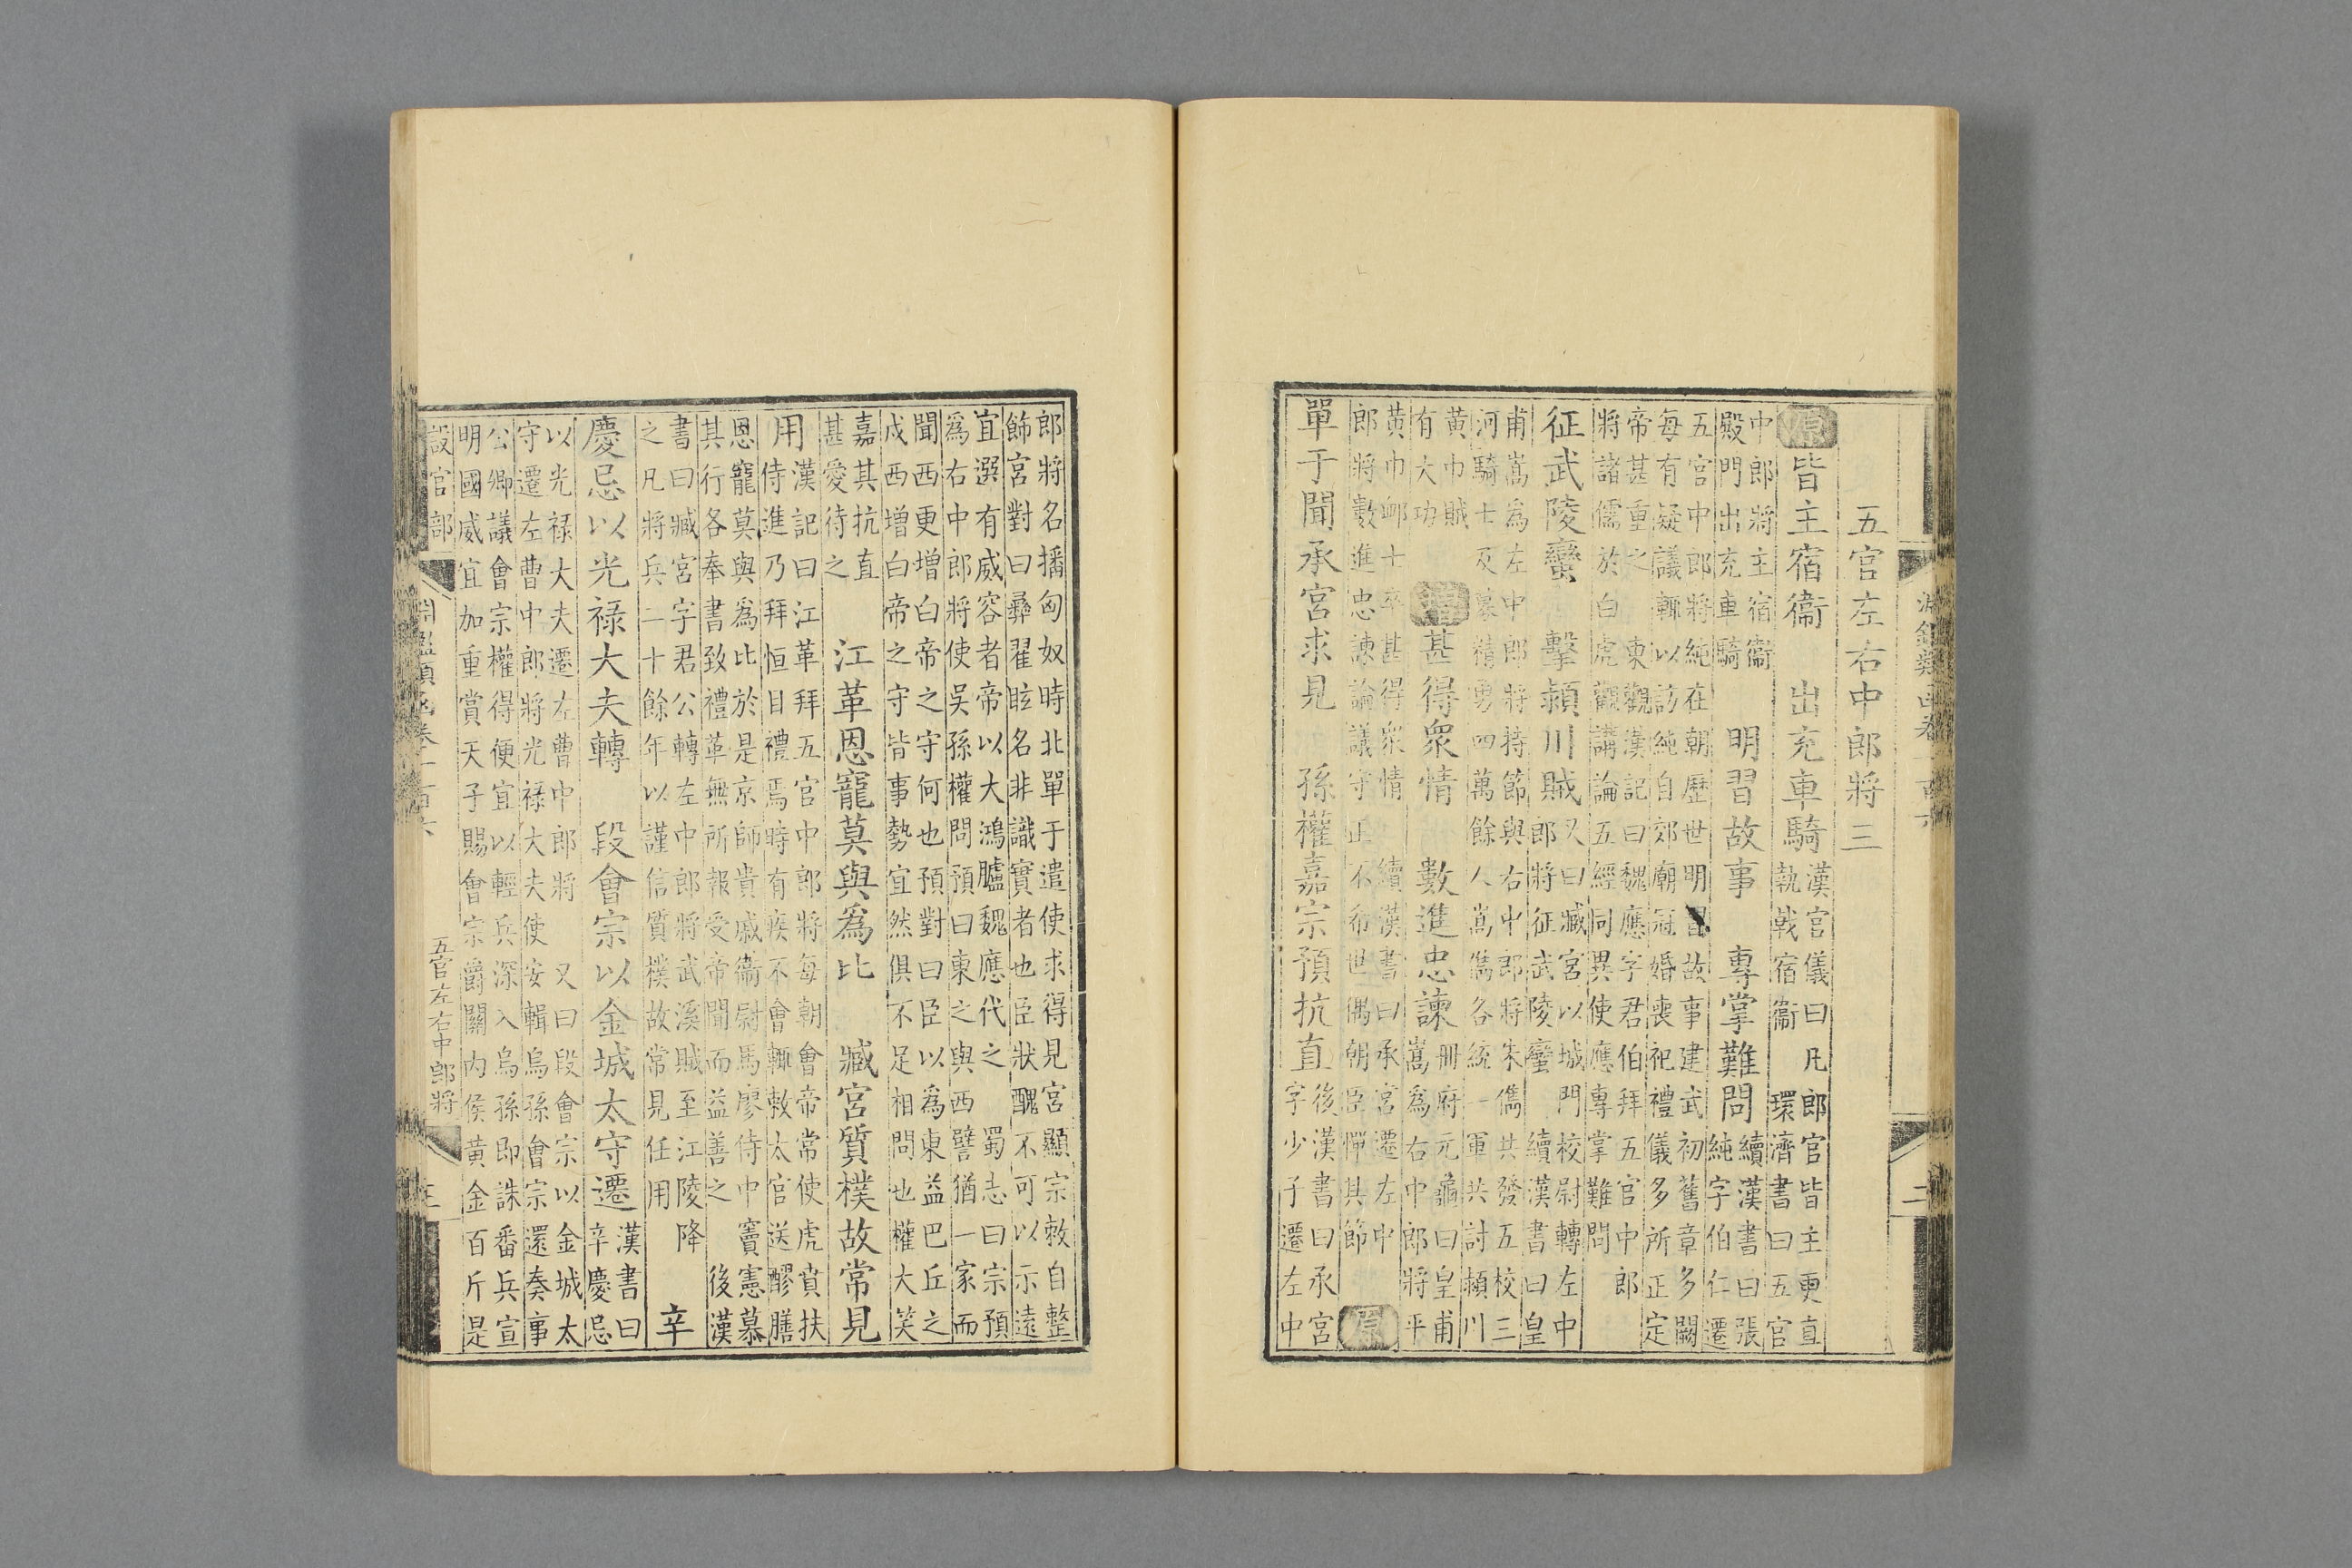 淵鑑類函卷一百六 二
五官左右中郎將三
原皆主宿衞 出充車騎
漢官儀曰凡郎官皆主更直
執戟宿衞 環濟書曰五官
中郎將主宿衞
殿門出充車騎
明習故事 專掌難問
續漢書曰張
純字伯仁遷
五官中郎將純在朝歷世明習故事建武初舊章多闕
每有疑議輒以訪純自郊廟冠婚喪祀禮儀多所正定
帝甚重之 東觀漢記曰魏應字君伯拜五官中郎
將諸儒於白虎觀講論五經同異使應專掌難問
征武陵蠻 擊潁川賊
又曰臧宮以城門校尉轉左中
郎將征武陵蠻 續漢書曰皇
甫嵩為左中郎將持節與右中郎將朱儁共發五校三
河騎士及募精勇四萬餘人嵩儁各統一軍共討潁川
黄巾賊
有大功
增甚得衆情 數進忠諫
冊府元龜曰皇甫
嵩為右中郎將平
黄巾卹士卒甚得衆情 續漢書曰承宮遷左中
郎將數進忠諫論議守正不希世偶朝臣憚其節
原
單于聞承宮求見 孫權嘉宗預抗直
後漢書曰承宮
字少子遷左中
郎將名播匈奴時北單于遣使求得見宮顯宗敕自整
飾宮對曰彞翟眩名非識實者也臣狀醜不可以示遠
宜選有威容者帝以大鴻臚魏應代之 蜀志曰宗預
爲右中郎將使吳孫權問預曰東之與西譬猶一家而
聞西更增白帝之守何也預對曰臣以為東益巴丘之
戍西增白帝之守皆事勢宜然俱不足相問也權大笑
嘉其抗直
甚愛待之
江革恩寵莫與爲比 臧宮質樸故常見
用
漢記曰江革拜五官中郎將每朝會帝常使虎賁扶
侍進乃拜恒目禮焉時有疾不會輒敕太官送醪膳
恩寵莫與爲比於是京師貴戚衞尉馬廖侍中竇憲慕
其行各奉書致禮革無所報受帝聞而益善之 後漢
書曰臧宮字君公轉左中郎將武溪賊至江陵降
之凡將兵二十餘年以謹信質樸故常見任用
辛
慶忌以光禄大夫轉 段會宗以金城太守遷
漢書曰
辛慶忌
以光禄大夫遷左曹中郎將 又曰段會宗以金城太
守遷左曹中郎將光禄大夫使安輯烏孫會宗還奏事
公卿議會宗權得便宜以輕兵深入烏孫即誅番兵宣
明國威宜加重賞天子賜會宗爵關内侯黄金百斤是
設官部 淵鑑類函卷一百六 五官左右中郎將 三